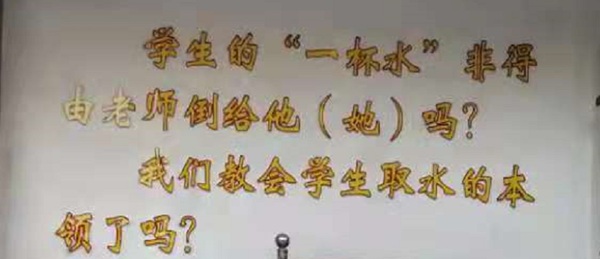 学生的“一杯水”非得
由老师倒给他(她)吗?
我们教会学生取水的本
领了吗?